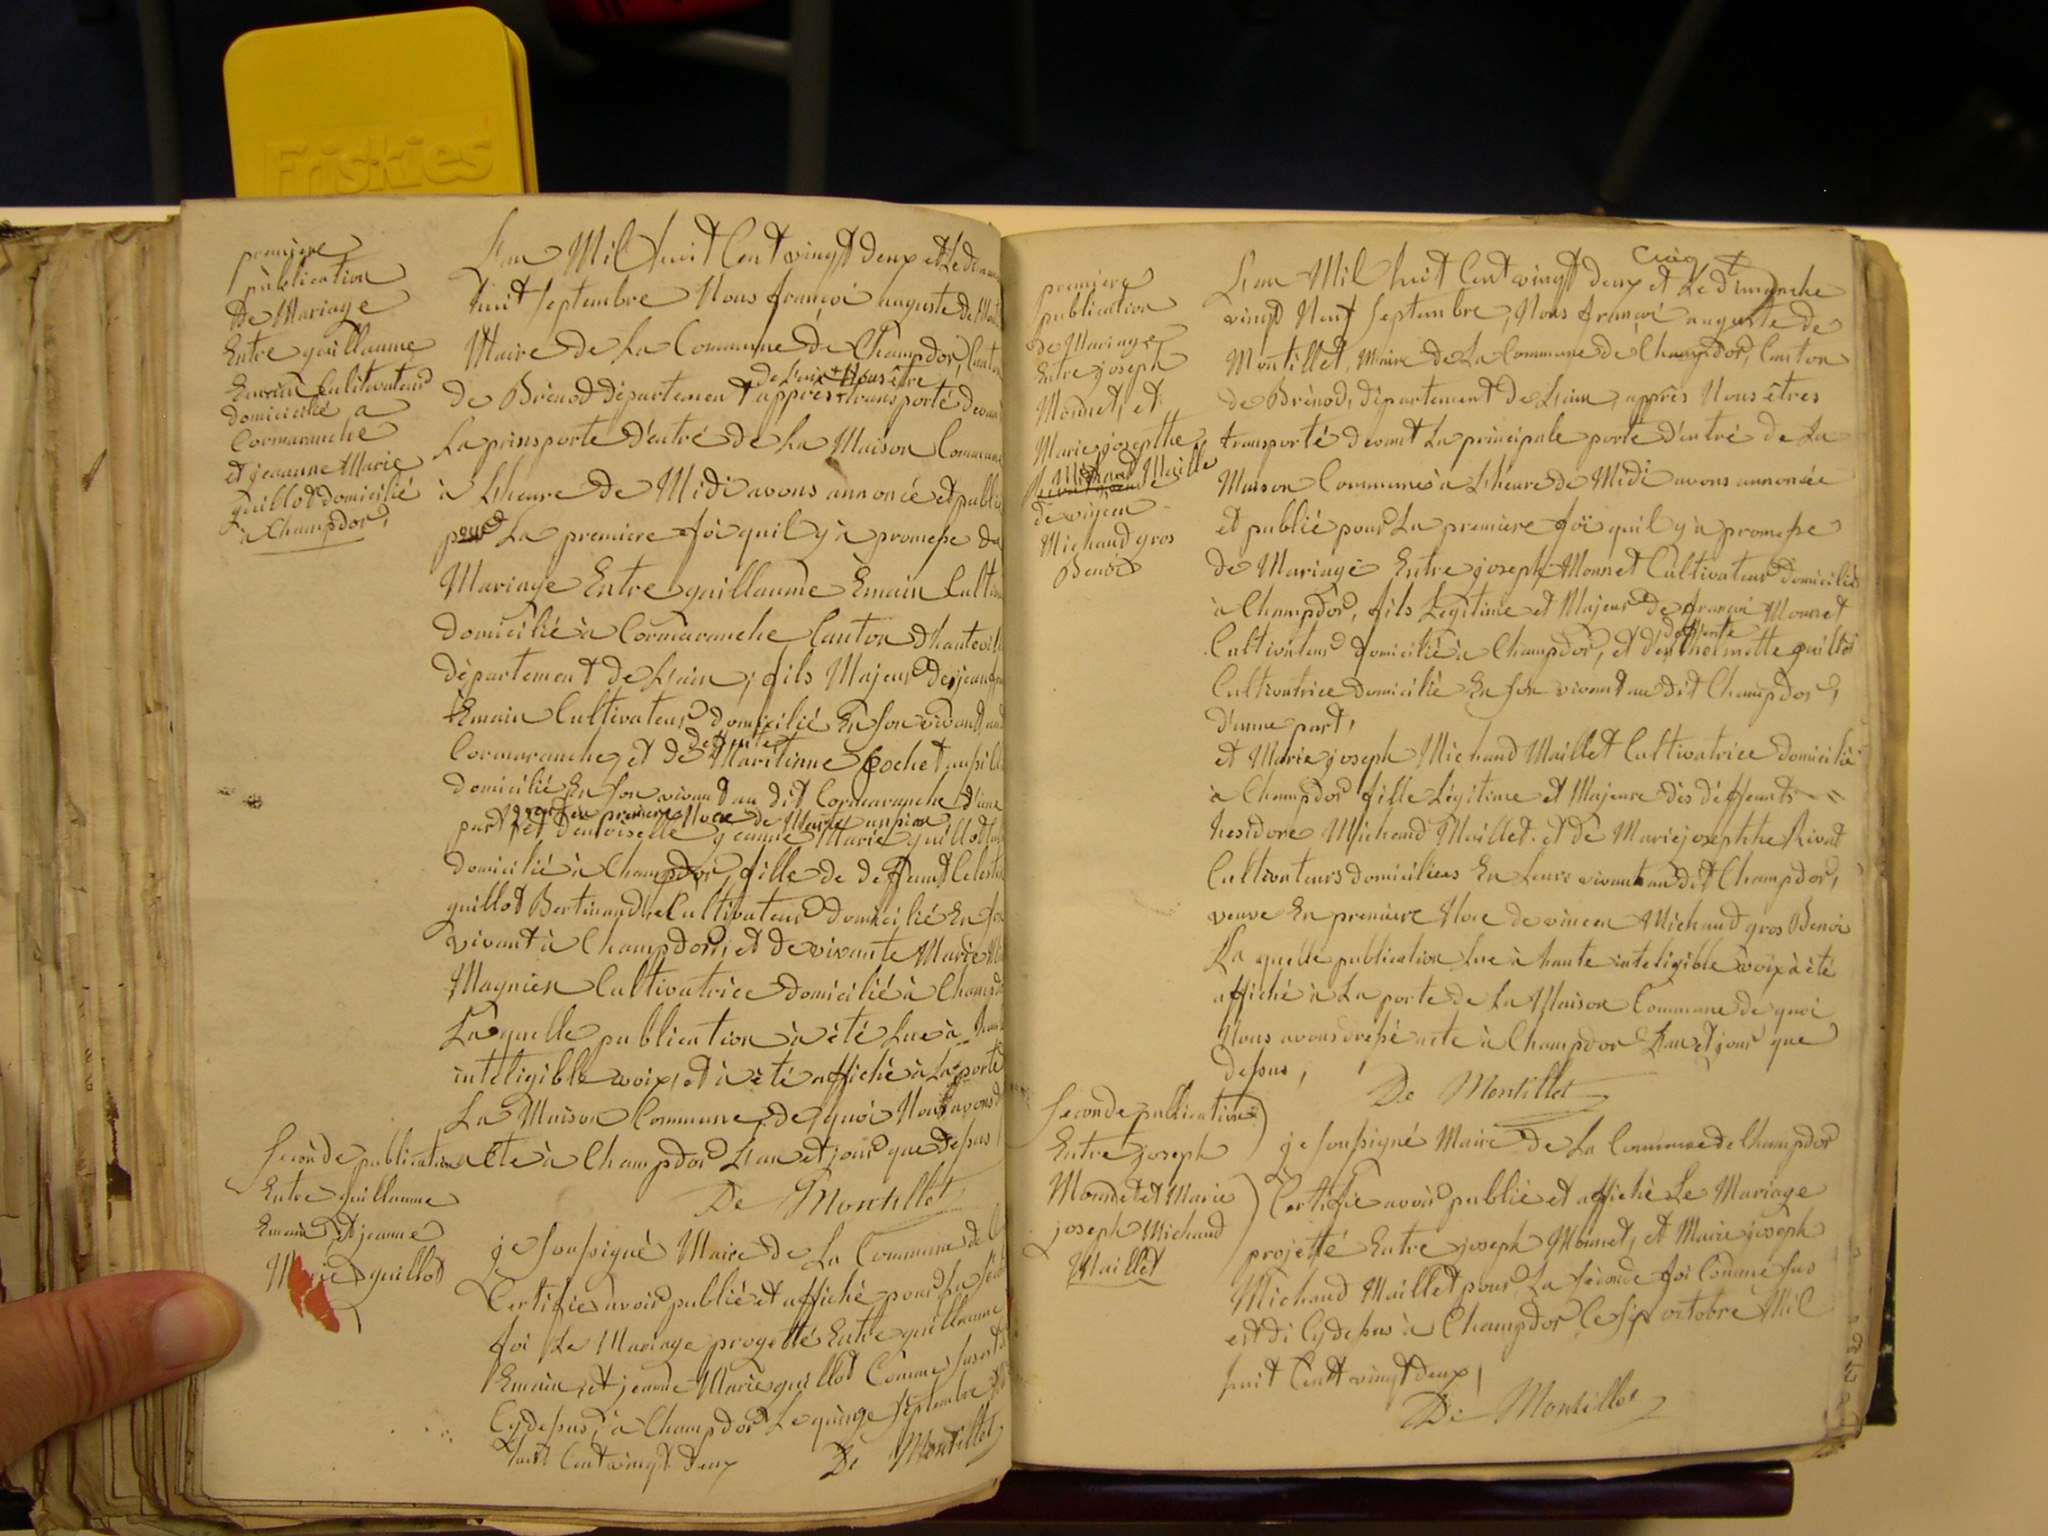 Friskies
première
publication
de Mariage
Entre guillaume
Emain Cultivateur
domicilié a
Cormaranche
et jeanne Marie
guillot domicilié
à Champdor,
L'an Mil huit Cent vingt deux et Le
huit septembre Nous françoi auguste de
Maire de La Commune de Champdor,
de Brénod département de L'ain Nous être
apprès transporté devant
La prinsporte d'entré de La Maison Commune
à Lheure de Midi avons annoncé et publié
pour La premiere foi quil y à promesse de
Mariage Entre guillaume Emain
domicilié à Cormaranche Canton d'hauteville
département de L'ain, fils Majeur de jean
Emain Cultivateur domicilié En son vivant
Cormaranche, et de deffunte Maritinne Cochet
domicilié En son vivant au dit Cormaranche d'une
part et demoiselle jeanne Marie guillot
domicilié à Champdor, fille de deffeunt
guillot Bertinand Cultivateur domicilié En son
vivant à Champdor, et de vivante Marie
Magnien Cultivatrice domicilié à
La quelle publication à été Lue à
inteligible voix, et à été affiché à La porte
La Maison Commune, de quoi Nous avons
acte à Champdor L'an et jour que desus
De Montillet
Seconde publication
Entre guillaume
Emain, et jeanne
Marie guillot
je soussigné Maire de La Commune de
Certifie avoir publié et affiché pour La
foi Le Mariage projetté Entre guillaume
Emain, et jeanne Marie guillot Comme
Cydesus, à Champdor Le quinze septembre
huit Cent vingt deux De Montillet
premiere
publication
de Mariage
Entre joseph
Monnet, et
Marie josepthe
Michaud Maillet
de vincen
Michaud gros
Benoi
Cinq
L'an Mil huit Cent vingt deux et Le dimanche
vingt Neuf septembre, Nous françoi auguste de
Montillet, Maire de La Commune de Champdor, Canton
de Brénod, département de L'ain, apprès Nous êtres
transporté devant La principale porte d'entré de La
Maison Commune à Lheure de Midi avons annoncée
et publié pour La premiere foi quil y à promesse
de Mariage Entre joseph Monnet Cultivateur domicilié
à Champdor, fils Légitime et Majeur de françoi Monnet
Cultivateur domicilié à Champdor, et deffunte thoinette guillot
Cultivatrice domicilié En son vivant au dit Champdor,
d'unne part,
et Marie joseph Michaud Maillet Cultivatrice domicilié
à Champdor fille Légitime et Majeure dès déffeunts
hesidore Michaud Maillet. et de Marie josepthe Rivat
Cultivateurs domiciliees En Leurs vivant au dit Champdor,
veuve En premiere Noce de vincen Michaud gros Benoi
La quelle publication Lue à haute inteligible voix à été
affiché à La porte de La Maison Commune de quoi
Nous avons dressé acte à Champdor L'an et jour que
desus, De Montillet
Seconde publication
Entre joseph
Monnet et Marie
joseph Michaud
Maillet
je soussigné Maire de La Commune de Champdor
Certifie avoir publié et affiché Le Mariage
projetté Entre joseph Monnet, et Marie joseph
Michaud Maillet pour La séconde foi Comme sus
est di Cydesus à Champdor Le six octobre Mil
huit Cent vingt deux,
De Montillet